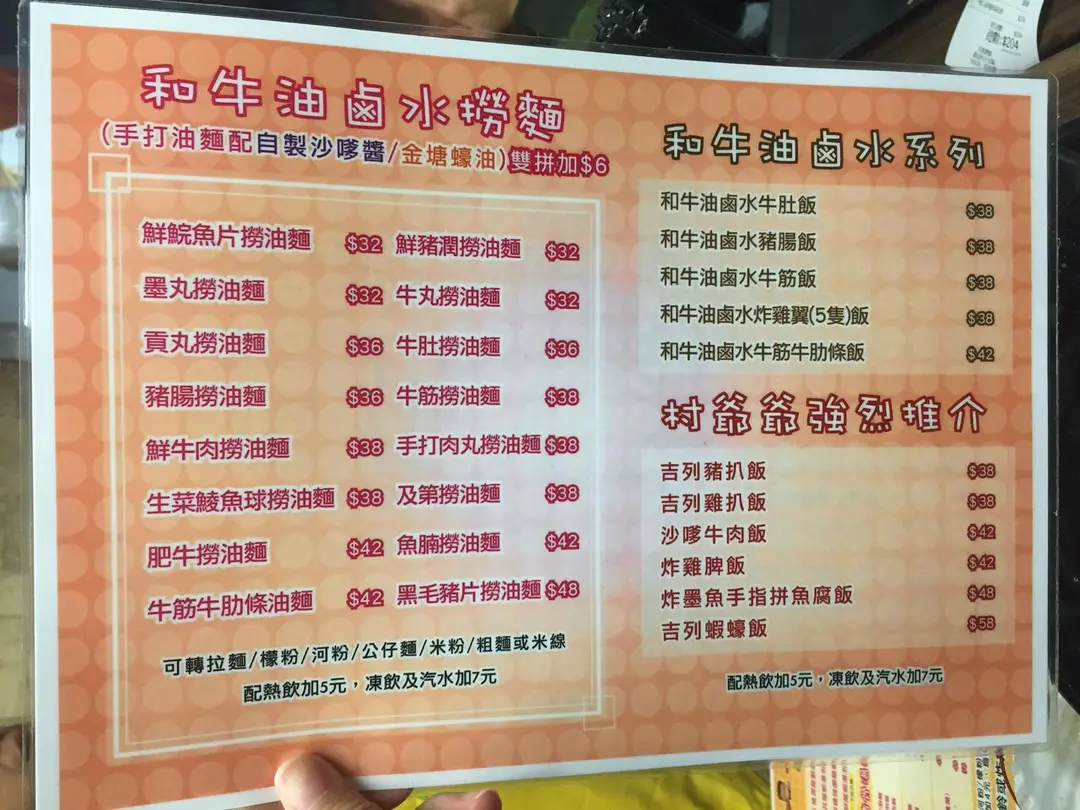 和牛油鹵水撈麵
(手打油麵配自製沙嗲醬/金塘蠔油)雙拼加$6
鮮鯇魚片撈油麵 $32
墨丸撈油麵 $32
貢丸撈油麵 $36
豬腸撈油麵 $36
鮮牛肉撈油麵 $38
生菜鯪魚球撈油麵 $38
肥牛撈油麵 $42
牛筋牛肋條油麵 $42
鮮豬潤撈油麵 $32
牛丸撈油麵 $32
牛肚撈油麵 $36
牛筋撈油麵 $38
手打肉丸撈油麵 $38
及第撈油麵 $38
魚腩撈油麵 $42
黑毛豬片撈油麵 $48
可轉拉麵/檬粉/河粉/公仔麵/米粉/粗麵或米線
配熱飲加5元，凍飲及汽水加7元
和牛油鹵水系列
和牛油鹵水牛肚飯 $38
和牛油鹵水豬腸飯 $38
和牛油鹵水牛筋飯 $38
和牛油鹵水炸雞翼(5隻)飯 $38
和牛油鹵水牛筋牛肋條飯 $42
村爺爺強烈推介
吉列豬扒飯 $38
吉列雞扒飯 $38
沙嗲牛肉飯 $42
炸雞脾飯 $42
炸墨魚手指拼魚腐飯 $48
吉列蝦蠔飯 $58
配熱飲加5元，凍飲及汽水加7元
$204